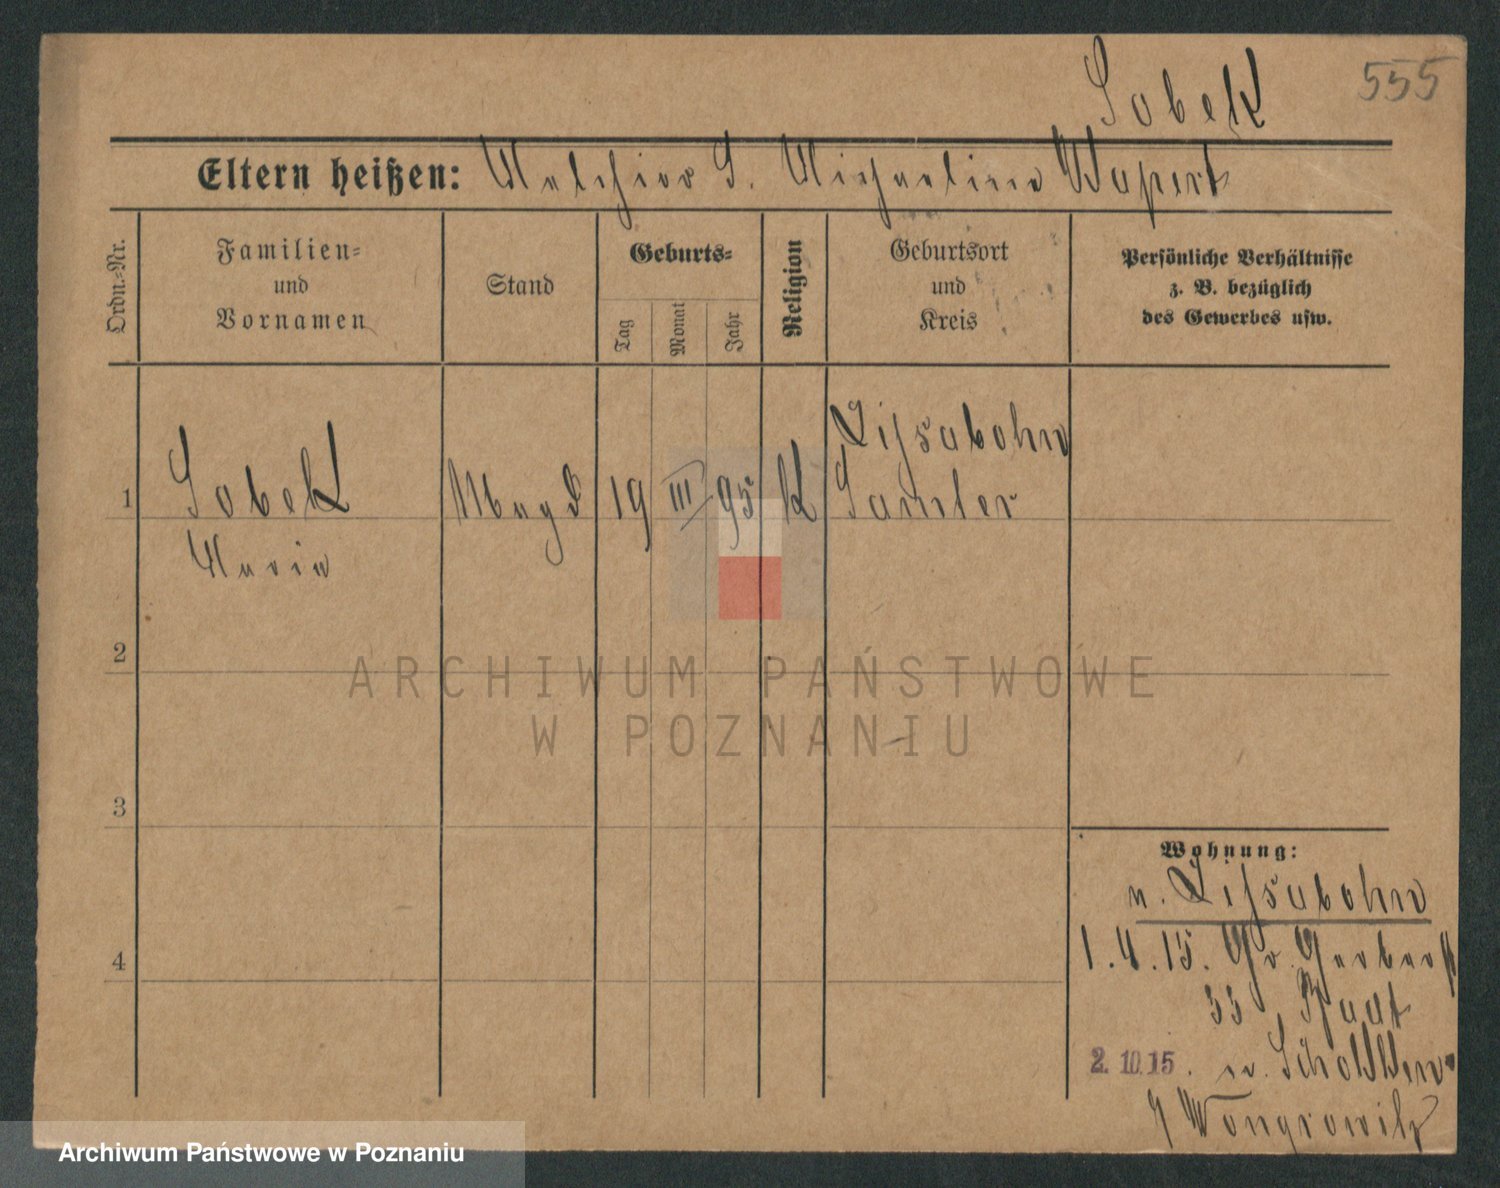 Sobek
555
Eltern heißen: Melchior S. Michaelina Wapert
Ordn.-Nr.
Familien-
und
Vornamen
Stand
Geburts-
Tag
Monat
Jahr
Religion
Geburtsort
und
Kreis
Persönliche Verhältnisse
z. B. bezüglich
des Gewerbes usw.
1
Sobek
Maria
Magd
19
III
95
K
Samter
2
3
4
Wohnung:
n.
1.4.15. Gr. Gerberst
33
2. 10. 15. n.
Wongrowitz
ARCHIWUM PAŃSTWOWE
W POZNANIU
Archiwum Państwowe w Poznaniu